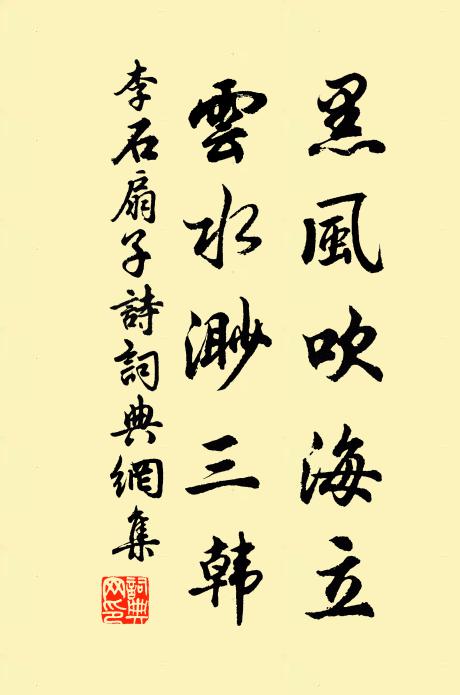 黑風吹海立
雲水渺三韓
李石扇子詩詞典網集
詞典網印